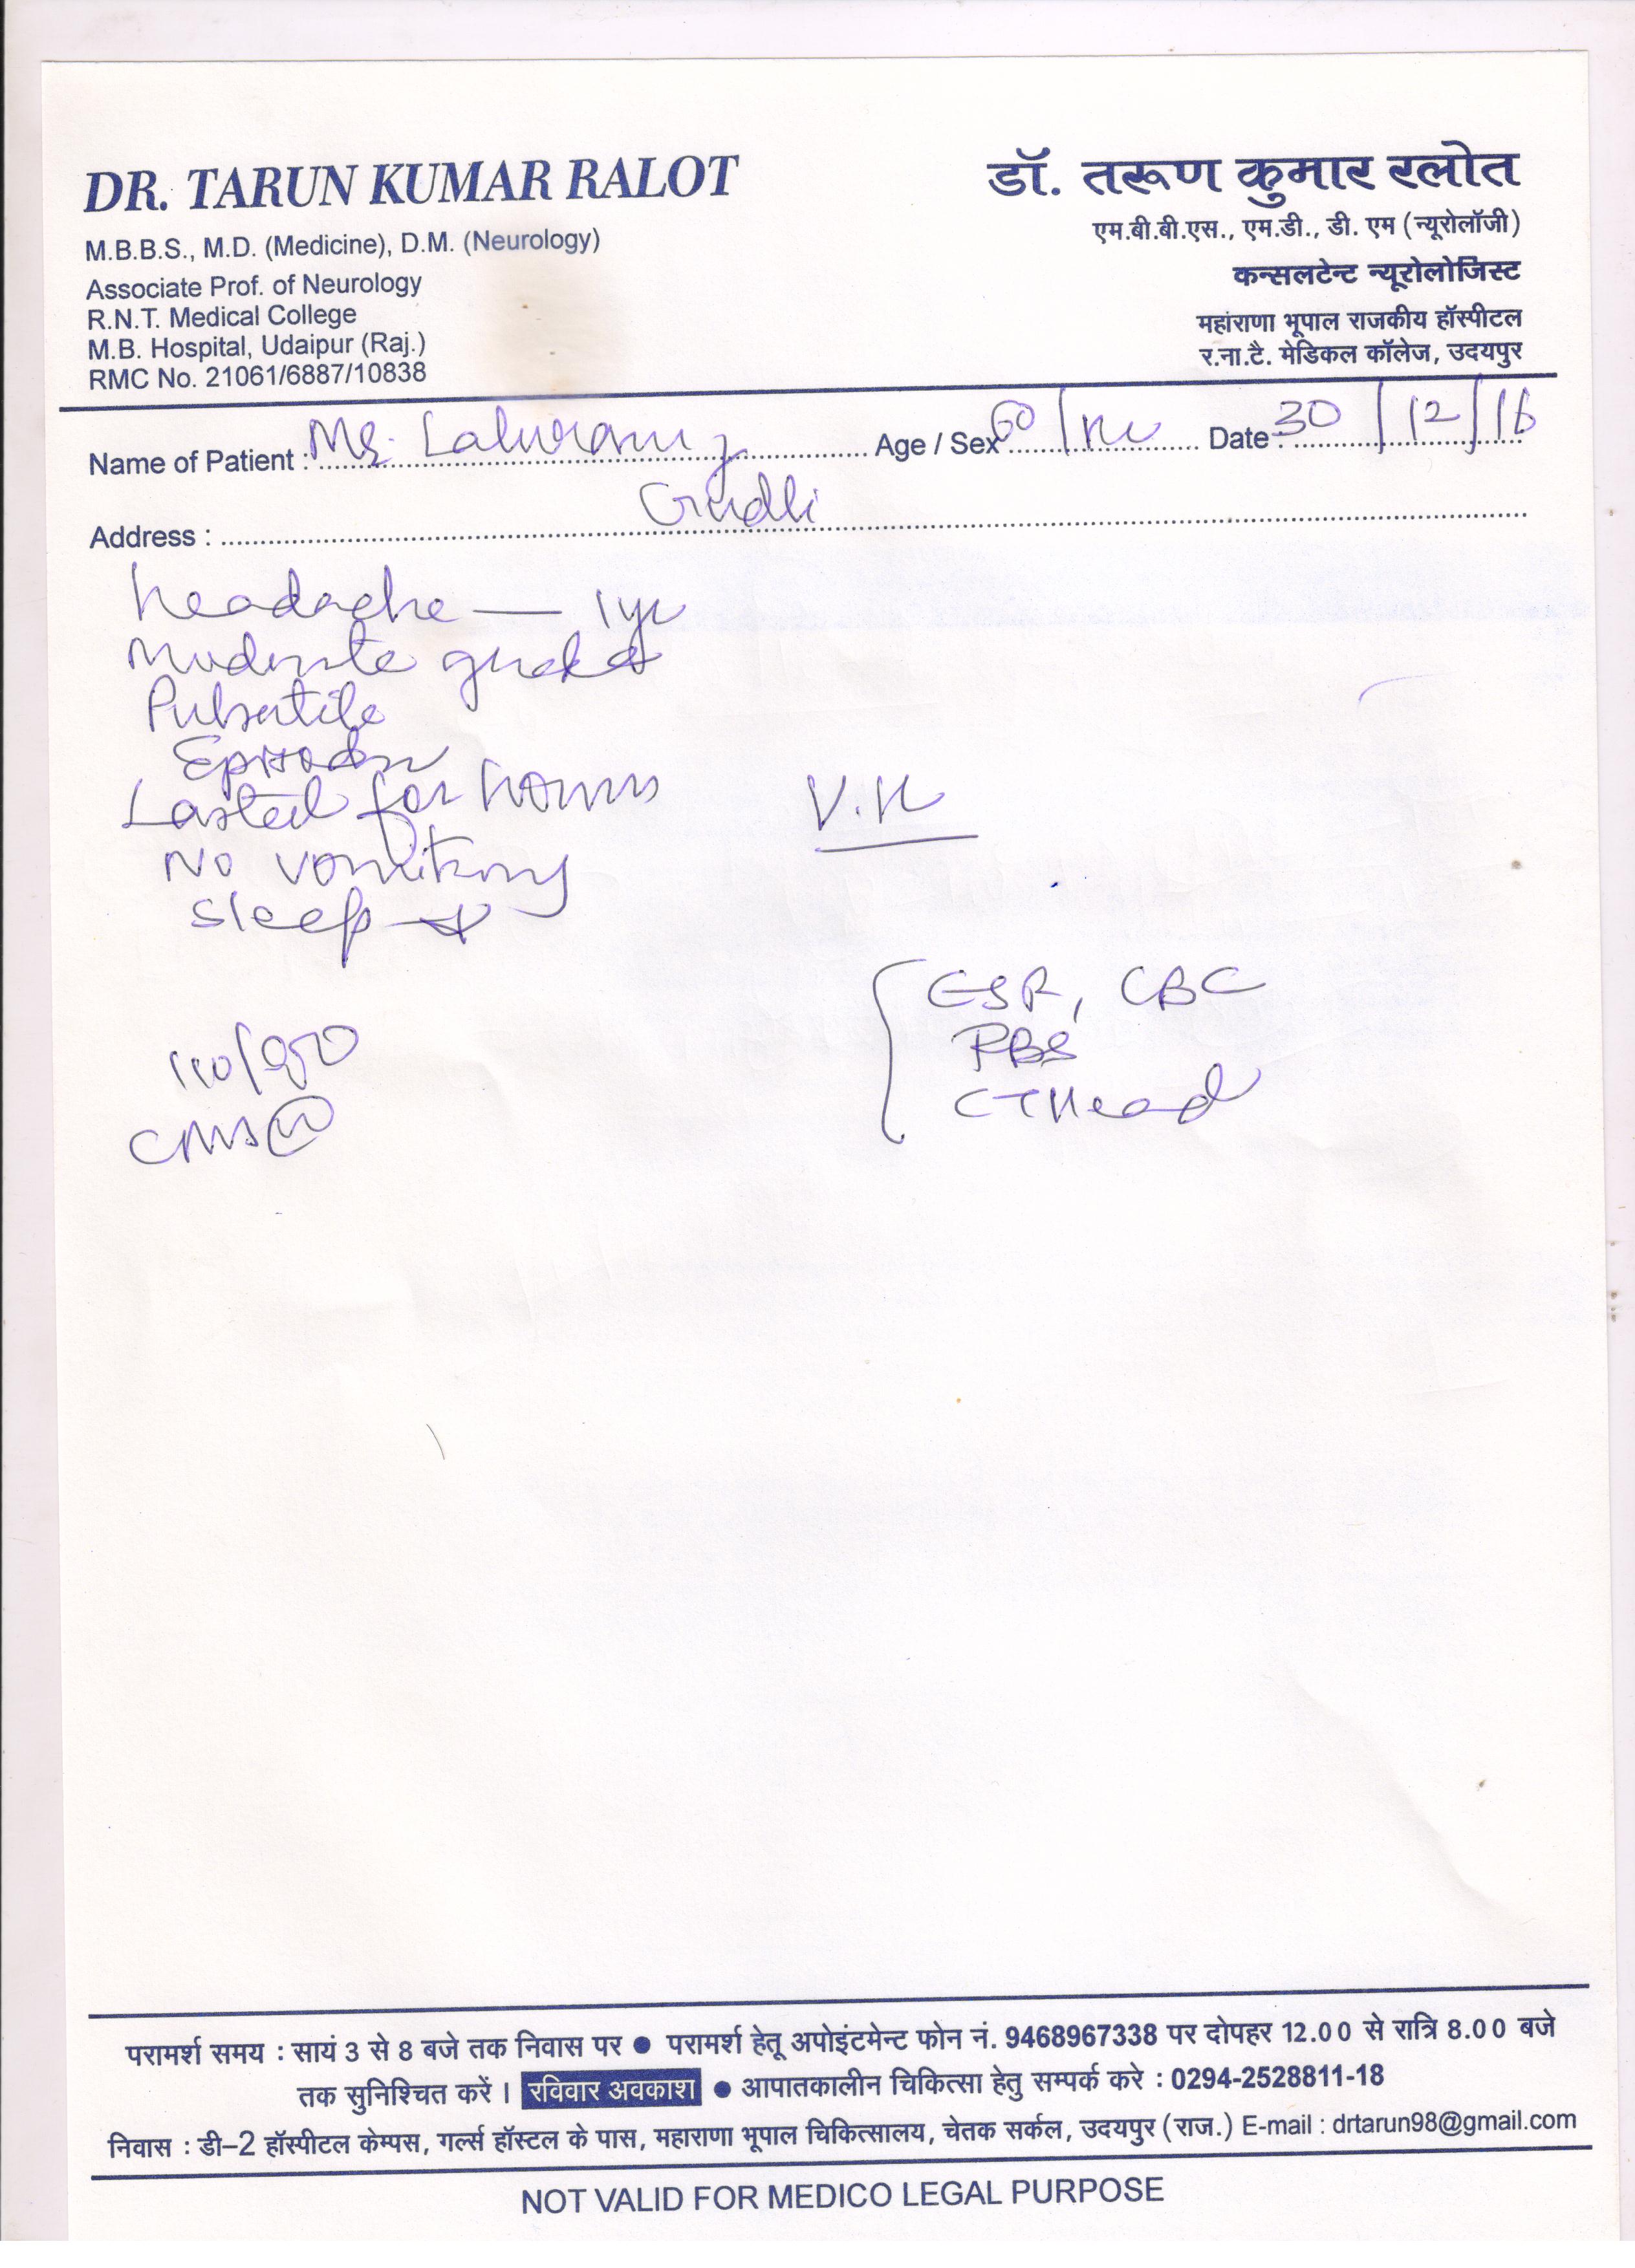 DR. TARUN KUMAR RALOT
M.B.B.S., M.D. (Medicine), D.M. (Neurology)
Associate Prof. of Neurology
R.N.T. Medical College
M.B. Hospital, Udaipur (Raj.)
RMC No. 21061/6887/10838
डॉ. तरूण कुमार रलोत
एम.बी.बी.एस., एम.डी., डी. एम (न्यूरोलॉजी)
कन्सलटेन्ट न्यूरोलोजिस्ट
महांराणा भूपाल राजकीय हॉस्पीटल
र.ना.टै. मेडिकल कॉलेज, उदयपुर
Name of Patient : Age / Sex 60 / M Date : 30/12/16
Address :
headache — 1yr
Moderate grade
Pulsatile
Episodes
Lasted for hours
No vomiting
Sleep
ESR, CBC
RBS
CT Head
CNS
परामर्श समय : सायं 3 से 8 बजे तक निवास पर ● परामर्श हेतू अपोइंटमेन्ट फोन नं. 9468967338 पर दोपहर 12.00 से रात्रि 8.00 बजे
तक सुनिश्चित करें। रविवार अवकाश ● आपातकालीन चिकित्सा हेतु सम्पर्क करे : 0294-2528811-18
निवास : डी–2 हॉस्पीटल केम्पस, गर्ल्स हॉस्टल के पास, महाराणा भूपाल चिकित्सालय, चेतक सर्कल, उदयपुर (राज.) E-mail : drtarun98@gmail.com
NOT VALID FOR MEDICO LEGAL PURPOSE